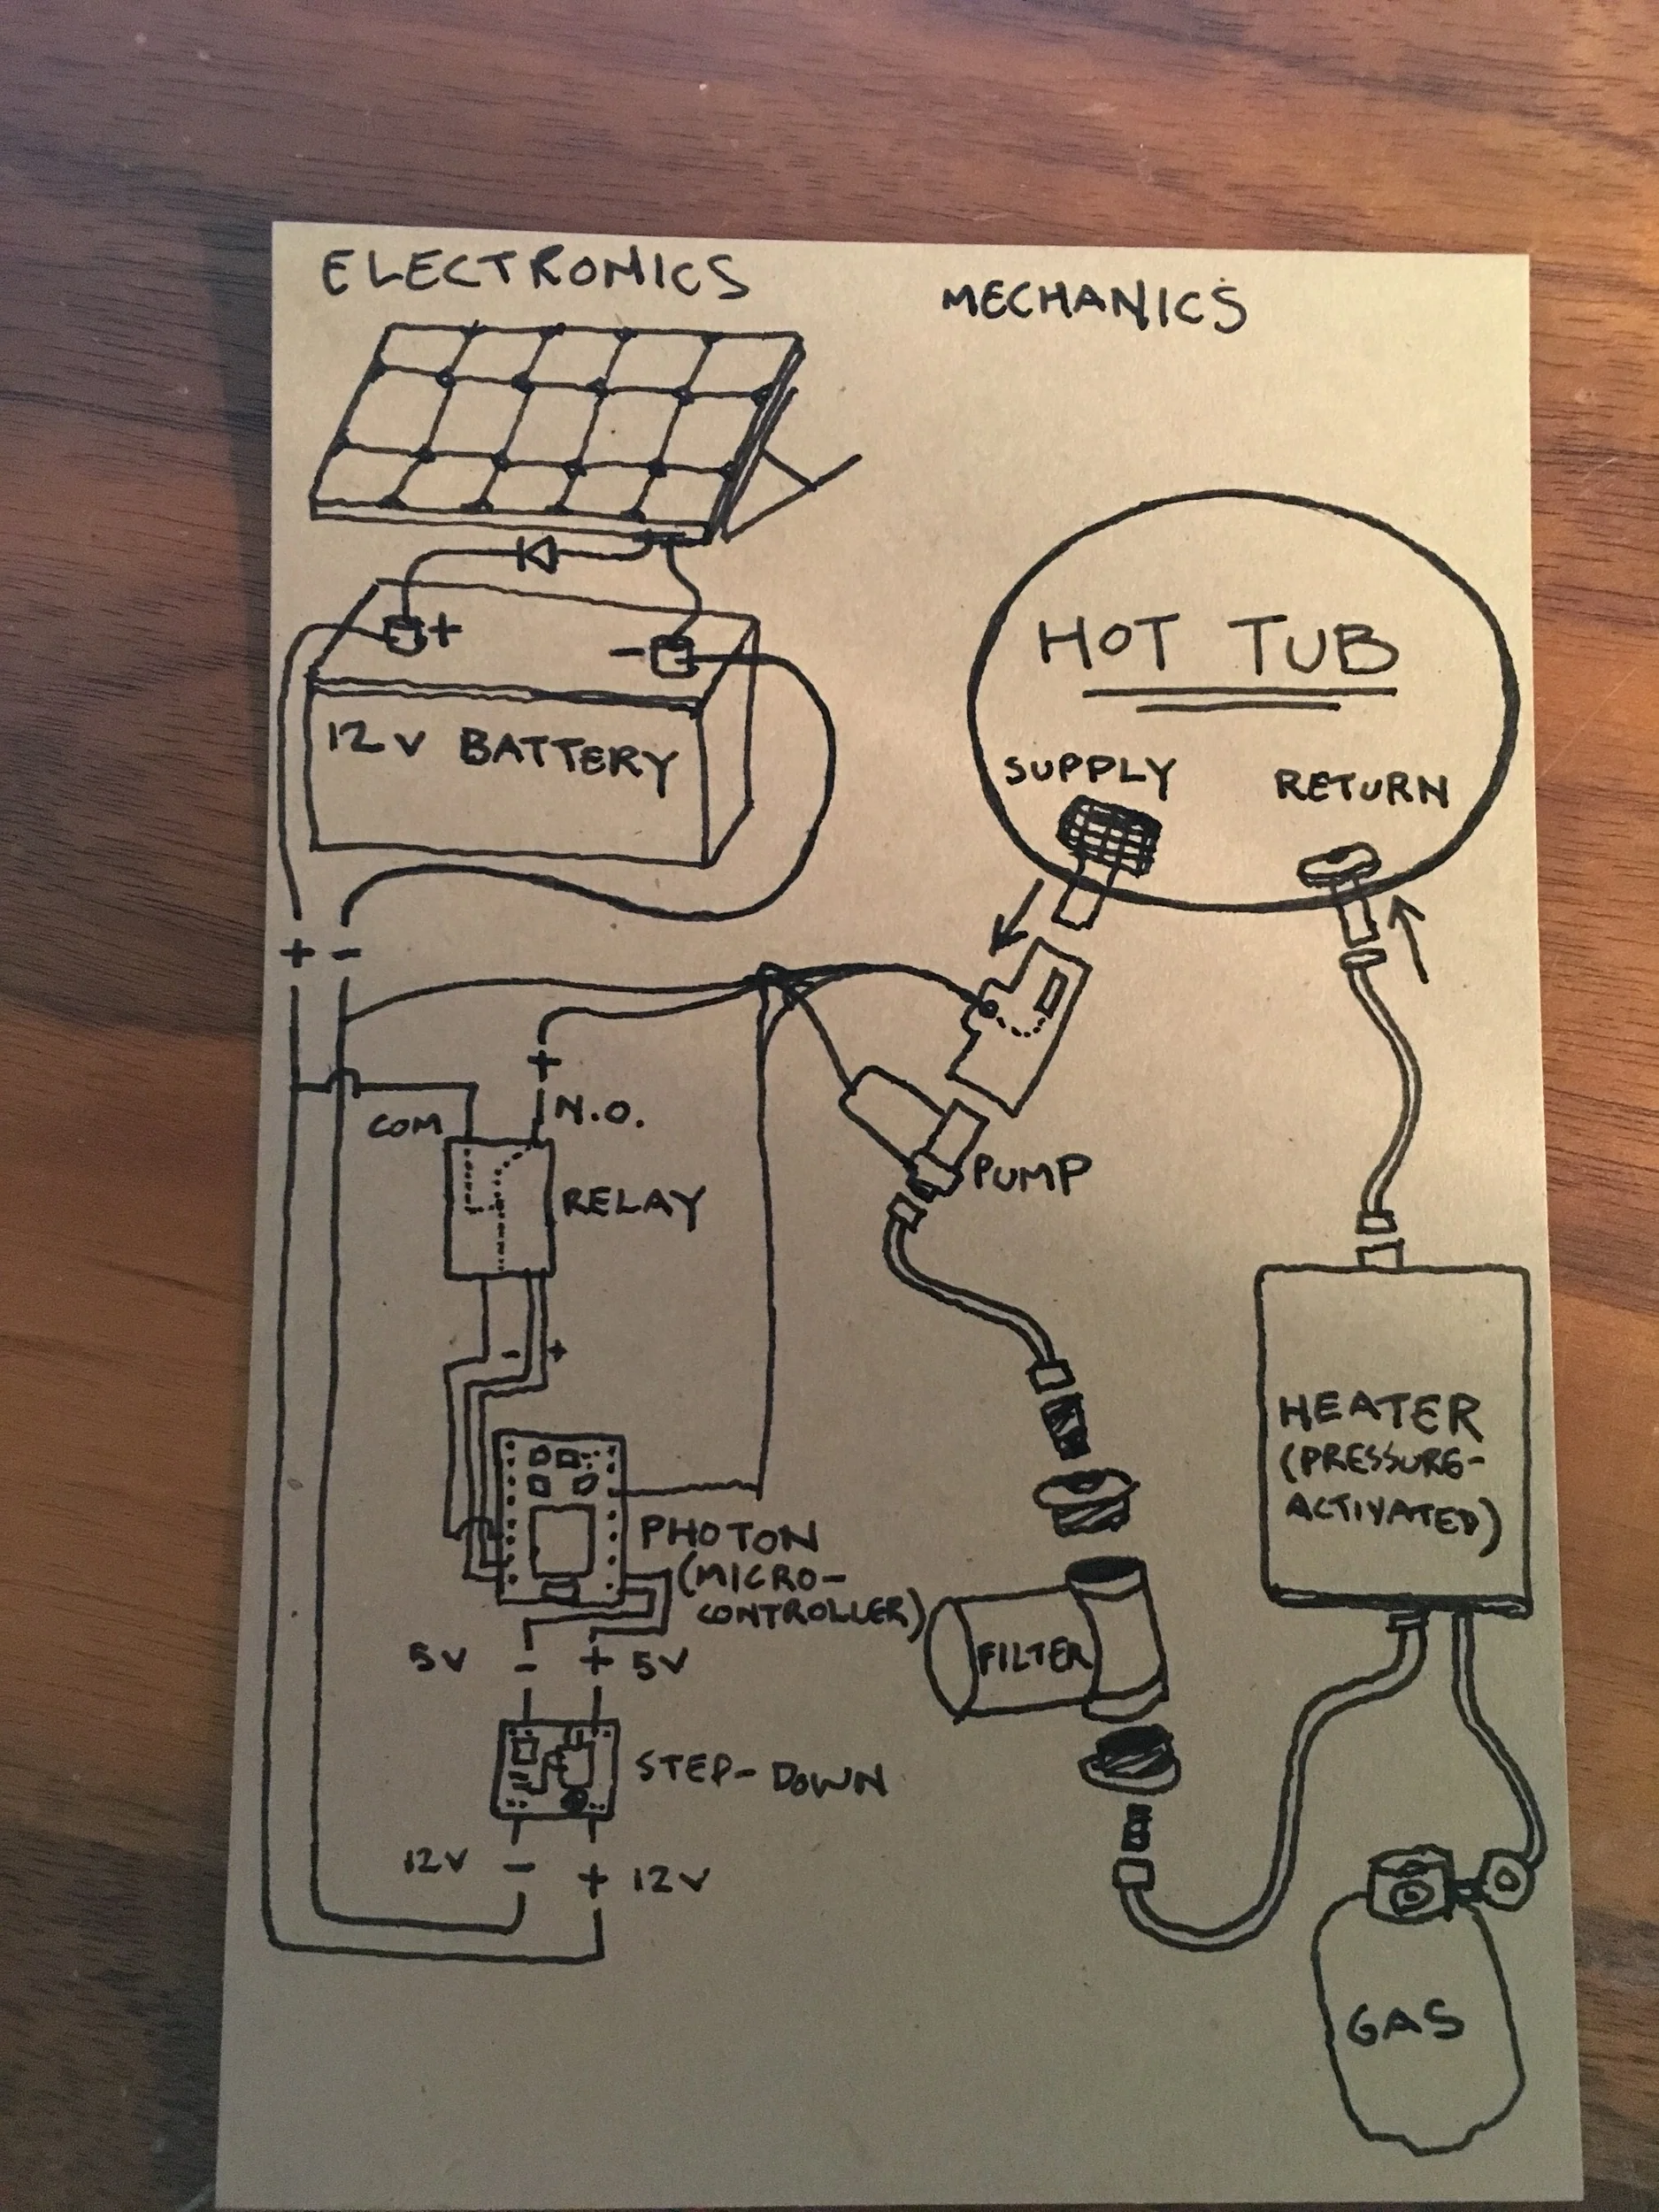 ELECTRONICS
MECHANICS
+
-
12V BATTERY
HOT TUB
SUPPLY
RETURN
+ -
+
COM
N.O.
RELAY
PUMP
- +
HEATER
(PRESSURE-
ACTIVATED)
PHOTON
(MICRO-
CONTROLLER)
5V - + 5V
FILTER
STEP-DOWN
12V - + 12V
GAS